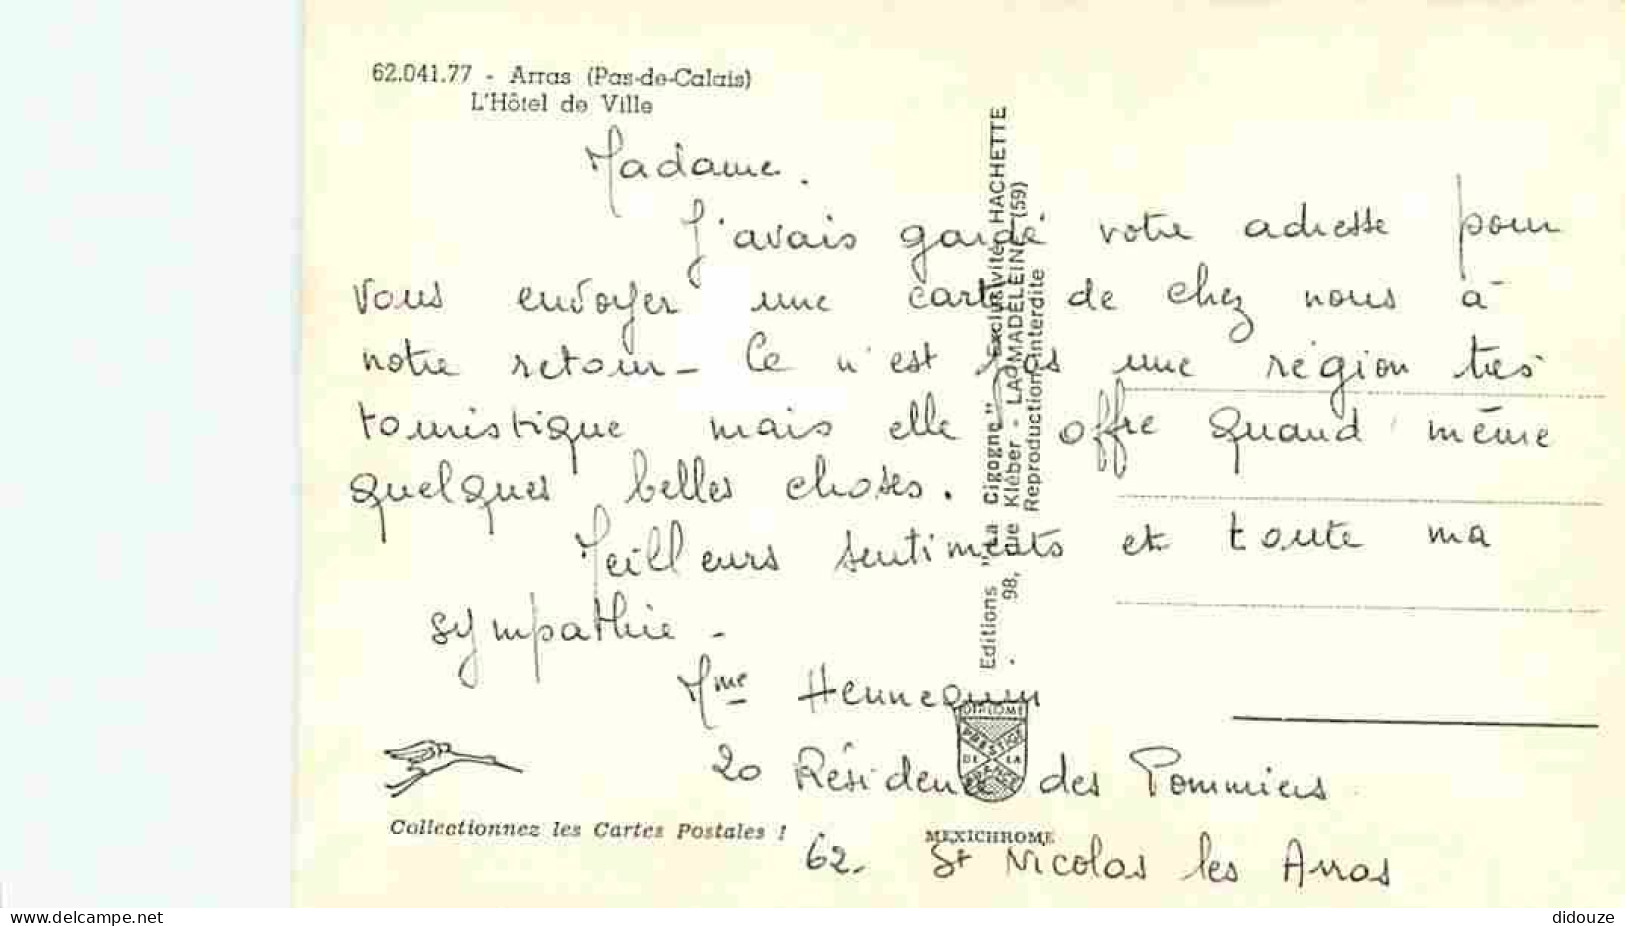 62.041.77 - Arras (Pas-de-Calais)
L'Hôtel de Ville
Madame.
J'avais gardé votre adresse pour
vous envoyer une carte de chez nous à
notre retour - Ce n'est pas une région très
touristique mais elle offre quand même
quelques belles choses.
Meilleurs sentiments et toute ma
sympathie -
Mme Hennequin
20 Résidence des Pommiers
62. St Nicolas les Arras
Editions "La Cigogne" - Exclusivité HACHETTE
98, rue Kléber - LA MADELEINE (59)
Reproduction interdite
DIPLOME
PRESTIGE
DE LA
FRANCE
Collectionnez les Cartes Postales !
MEXICHROME
www.delcampe.net
didouze